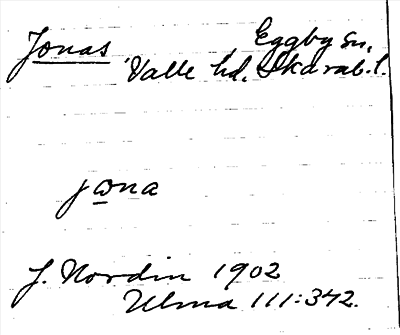 Jonas
Eggby sn,
Valle hd, Skarab. l.
jωna
J. Nordin 1902
Ulma 111:342.